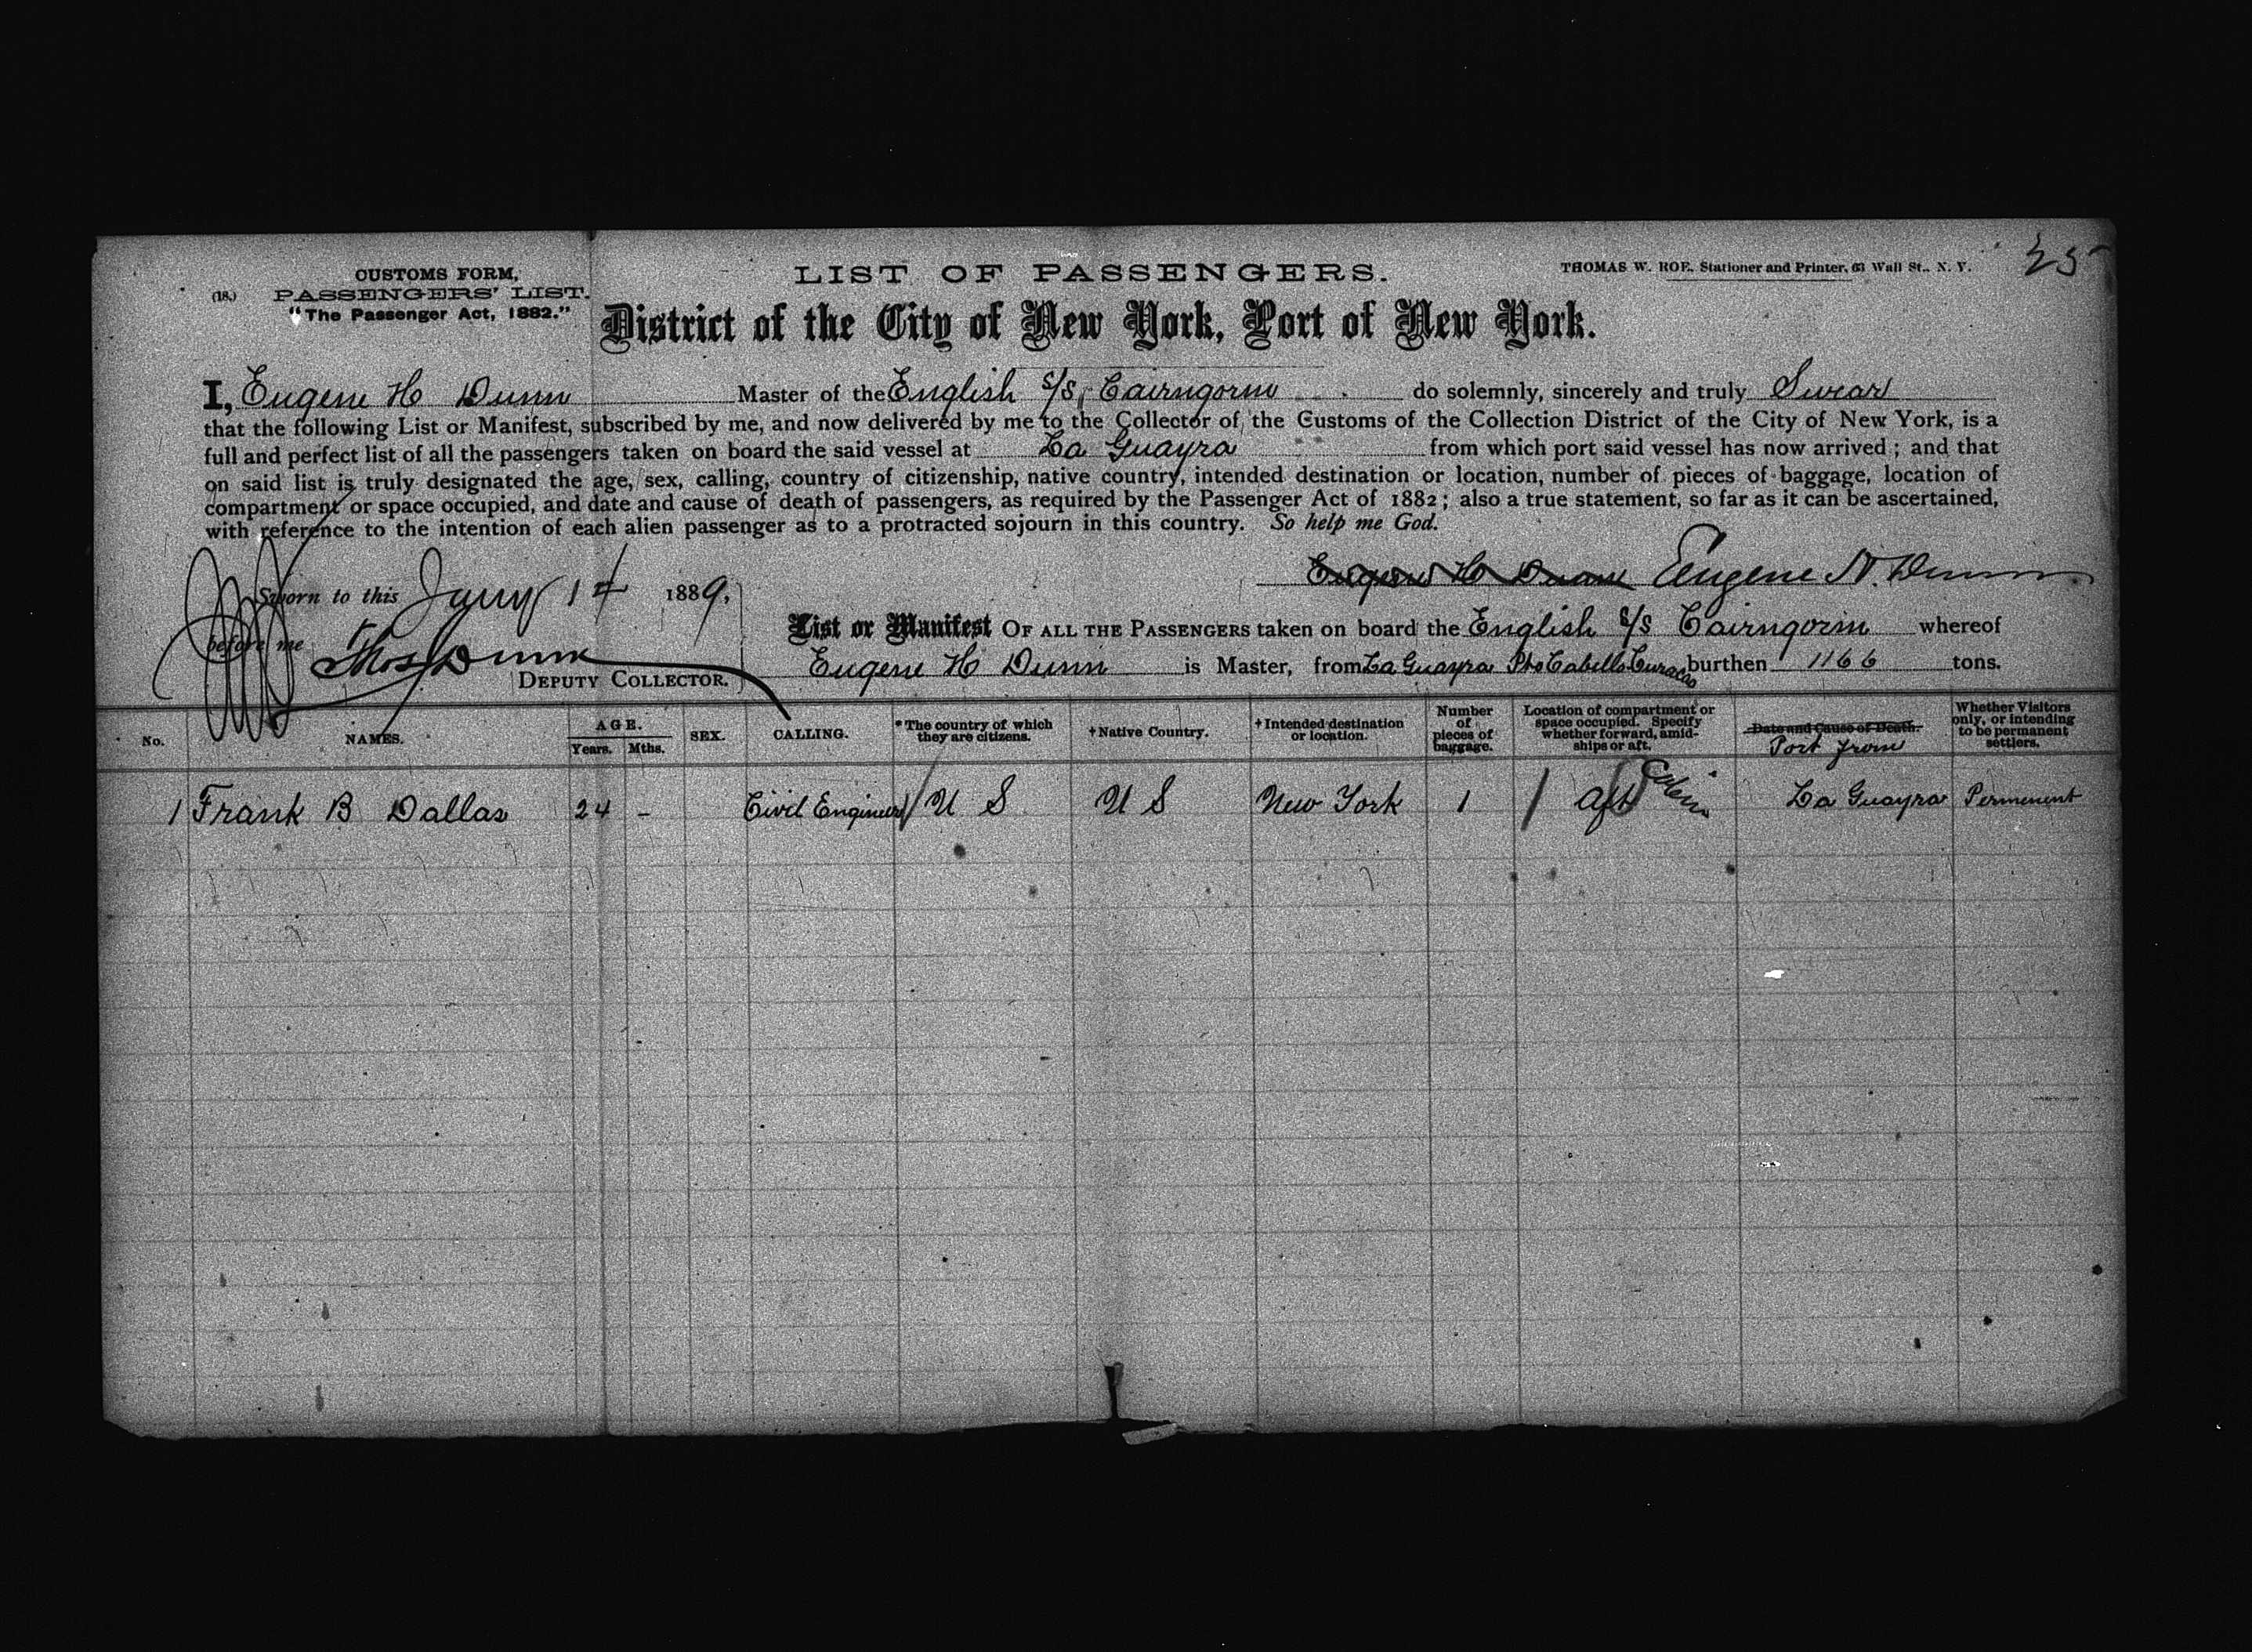 25
CUSTOMS FORM,
(18.) PASSENGERS' LIST.
"The Passenger Act, 1882."
LIST OF PASSENGERS.
THOMAS W. ROE, Stationer and Printer, 63 Wall St., N. Y.
District of the City of New York, Port of New York.
I, Eugene H Dunn Master of the English S/S, Cairngorm do solemnly, sincerely and truly Swear
that the following List or Manifest, subscribed by me, and now delivered by me to the Collector of the Customs of the Collection District of the City of New York, is a
full and perfect list of all the passengers taken on board the said vessel at La Guayra from which port said vessel has now arrived; and that
on said list is truly designated the age, sex, calling, country of citizenship, native country, intended destination or location, number of pieces of baggage, location of
compartment or space occupied, and date and cause of death of passengers, as required by the Passenger Act of 1882; also a true statement, so far as it can be ascertained,
with reference to the intention of each alien passenger as to a protracted sojourn in this country. So help me God.
Eugene H Dunn Eugene H. Dunn
Sworn to this Jany 14 1889,
before me Thos Dunn
DEPUTY COLLECTOR.
List or Manifest OF ALL THE PASSENGERS taken on board the English S/S Cairngorm whereof
Eugene H Dunn is Master, from La Guayra Pto Cabello Curacao burthen 1166 tons.
No. NAMES. AGE. Years. Mths. SEX. CALLING. *The country of which they are citizens. †Native Country. †Intended destination or location. Number of pieces of baggage. Location of compartment or space occupied. Specify whether forward, amidships or aft. Date and Cause of Death. Port from Whether Visitors only, or intending to be permanent settlers.
1 Frank B Dallas 24 - Civil Engineer U S U S New York 1 Aft Cabin La Guayra Permenent